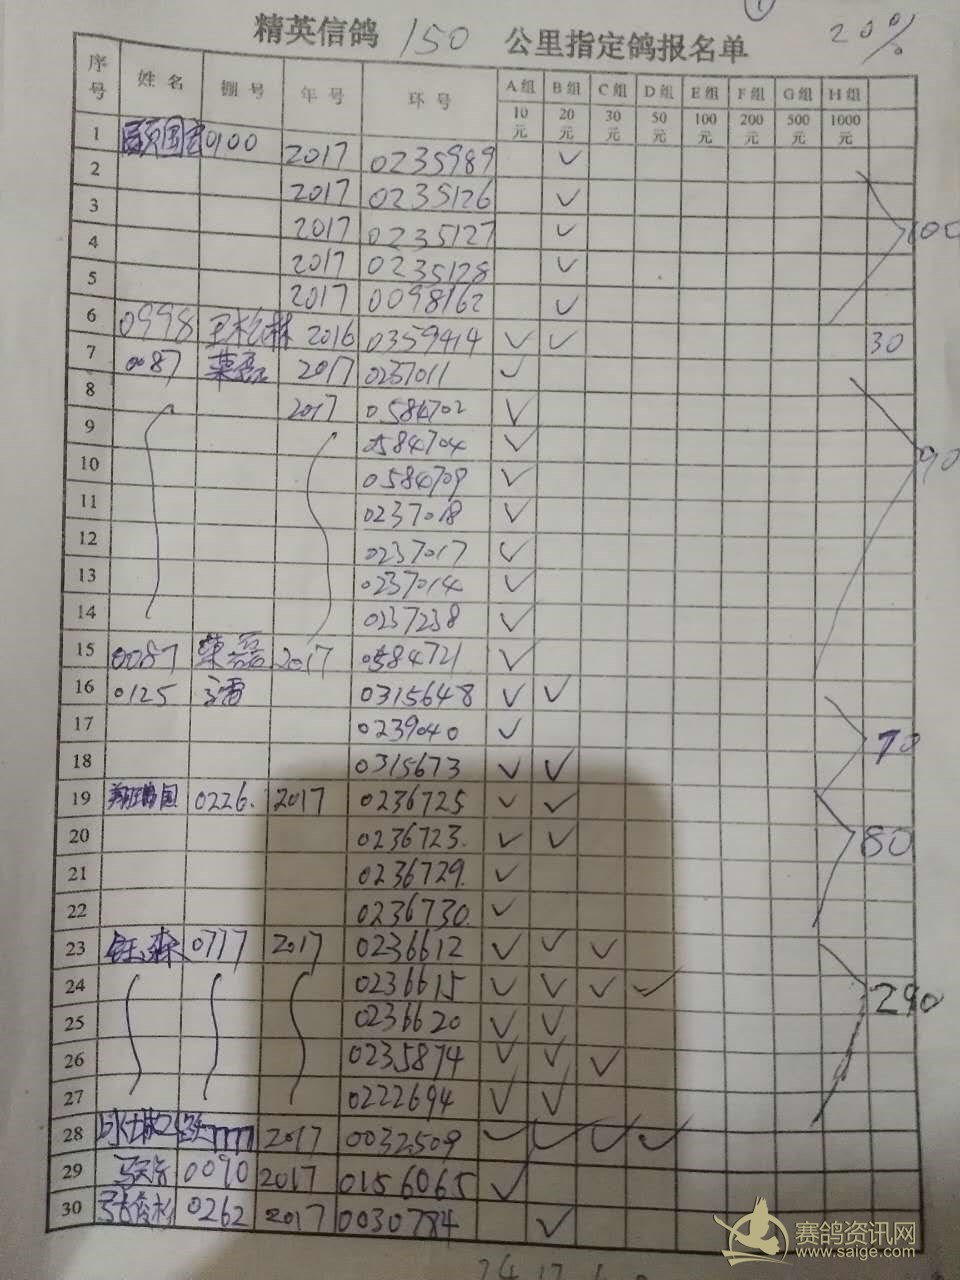 精英信鸽 150 公里指定鸽报名单 20%
序号 姓名 棚号 年号 环号 A组 B组 C组 D组 E组 F组 G组 H组
10元 20元 30元 50元 100元 200元 500元 1000元
1 0100 2017 0235989 ✓
2 2017 0235126 ✓
3 2017 0235127 ✓ 100
4 2017 0235128 ✓
5 2017 0098162 ✓
6 0998 王松林 2016 0359414 ✓ ✓ 30
7 0087 荣磊 2017 0237011 ✓
8 2017 0584702 ✓
9 0584704 ✓ 90
10 0584709 ✓
11 0237018 ✓
12 0237017 ✓
13 0237014 ✓
14 0237238 ✓
15 0087 荣磊 2017 0584721 ✓
16 0125 0315648 ✓ ✓
17 0239040 ✓ 70
18 0315673 ✓ ✓
19 0226. 2017 0236725 ✓ ✓
20 0236723. ✓ ✓ 80
21 0236729. ✓
22 0236730. ✓
23 0777 2017 0236612 ✓ ✓ ✓
24 0236615 ✓ ✓ ✓ ✓ 290
25 0236620 ✓ ✓
26 0235874 ✓ ✓ ✓
27 0222694 ✓ ✓
28 2017 0032509 ✓ ✓ ✓ ✓
29 0090 2017 0156065 ✓
30 0262 2017 0030784 ✓
赛鸽资讯网
www.saige.com